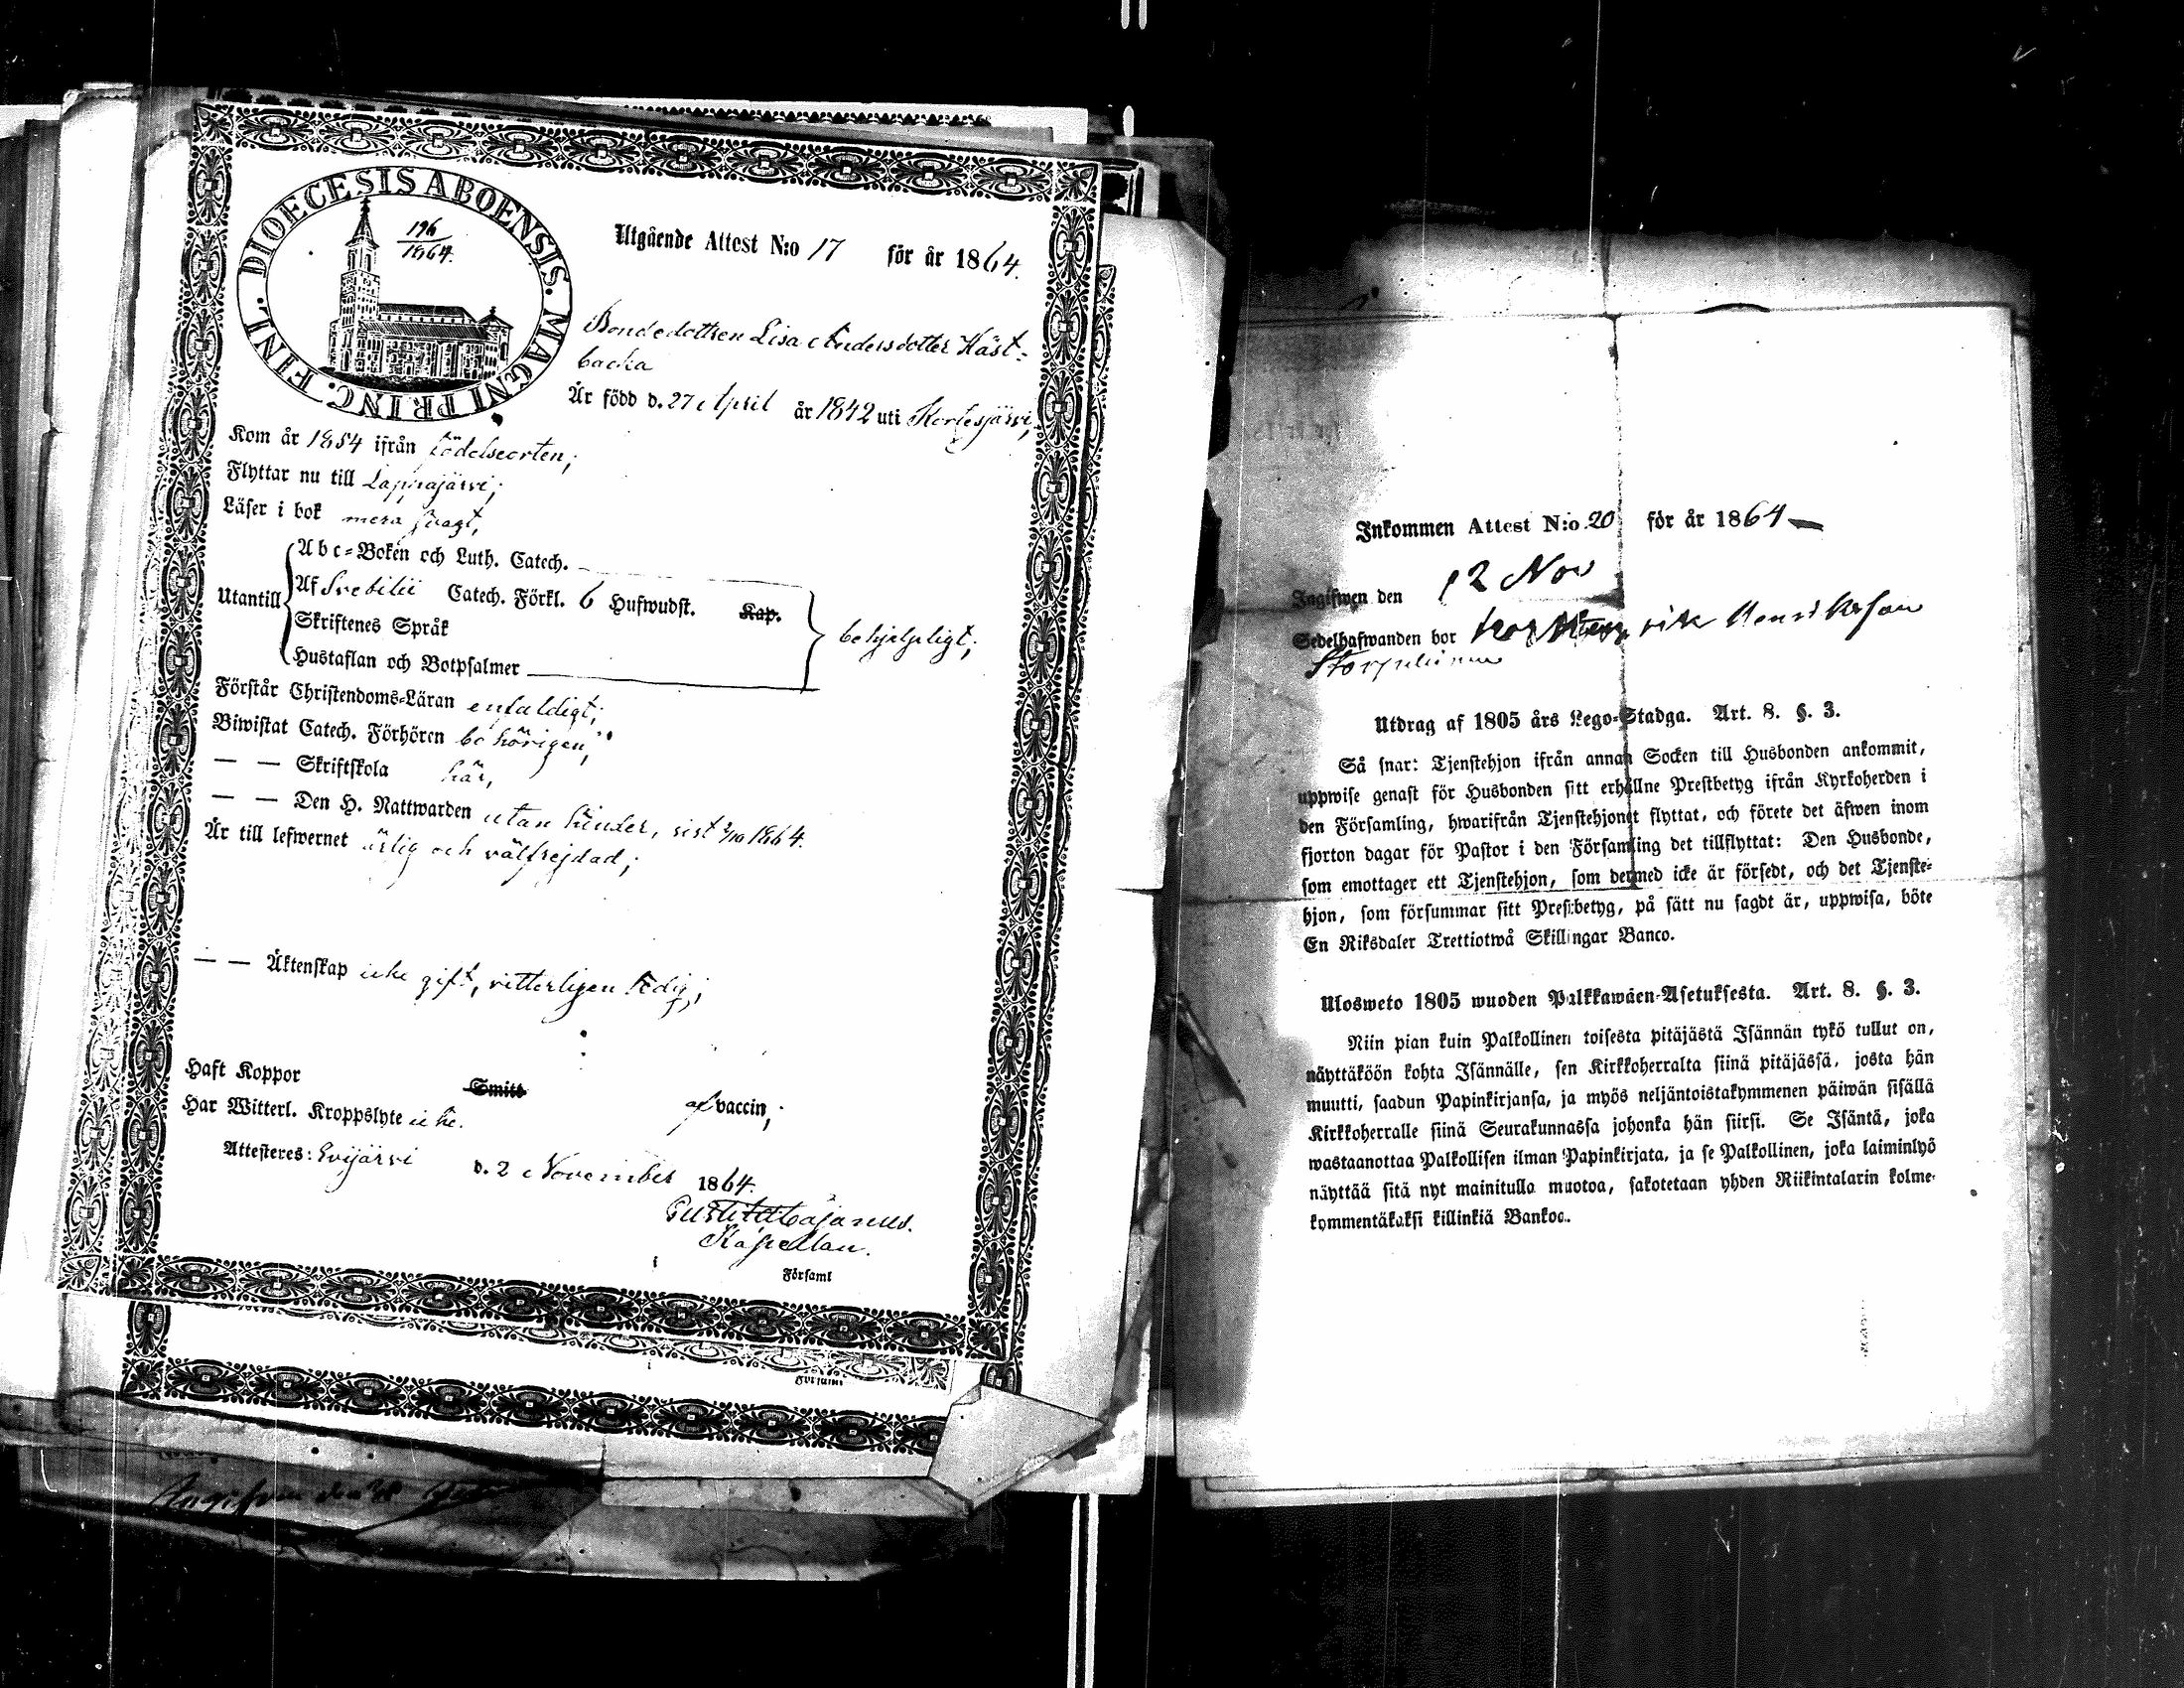 DIOECESIS ABOENSIS. MAGNI PRINC. FINL.
196
1864.
Utgående Attest N:o 17 för år 1864.
Bondedottren Lisa Andersdotter Häst-
backa
Är född d. 27 April år 1842 uti Kortesjärvi;
Kom år 1854 ifrån födelseorten;
Flyttar nu till Lappajärvi;
Läser i bok mera svagt,
Utantill
Abc-Boken och Luth. Catech.
Af Svebilii Catech. Förkl. 6 Hufwudst. Kap.
Skriftenes Språk
Hustaflan och Botpsalmer
behjelpligt;
Förstår Christendoms-Läran enfaldigt;
Biwistat Catech. Förhören behörigen;
— — Skriftskola här,
— — Den H. Nattwarden utan hinder, sist 2/10 1864.
Är till lefwernet ärlig och välfrejdad;
— — Äktenskap icke gift, vitterligen ledig;
Haft Koppor Smitt af vaccin;
Har Witterl. Kroppslyte icke.
Attesteres: Evijärvi d. 2 November 1864.
Cajanus.
Kapellan.
Församl
Inkommen Attest N:o 20 för år 1864
Ingifwen den 12 Nov
Sedelhafwanden bor hos Henrik Henriksson
Utdrag af 1805 års Lego-Stadga. Art. 8. §. 3.
Så snart Tjenstehjon ifrån annan Socken till Husbonden ankommit,
uppwise genast för Husbonden sitt erhållne Prestbetyg ifrån Kyrkoherden i
den Församling, hwarifrån Tjenstehjonet flyttat, och förete det äfwen inom
fjorton dagar för Pastor i den Församling det tillflyttat: Den Husbonde,
som emottager ett Tjenstehjon, som dermed icke är försedt, och det Tjenste-
hjon, som försummar sitt Prestbetyg, på sätt nu sagdt är, uppwisa, böte
En Riksdaler Trettiotwå Skillingar Banco.
Ulosweto 1805 wuoden Palkkawäen-Asetuksesta. Art. 8. §. 3.
Niin pian kuin Palkollinen toisesta pitäjästä Isännän tykö tullut on,
näyttäköön kohta Isännälle, sen Kirkkoherralta siinä pitäjässä, josta hän
muutti, saadun Papinkirjansa, ja myös neljäntoistakymmenen päiwän sisällä
Kirkkoherralle siinä Seurakunnassa johonka hän siirsi. Se Isäntä, joka
wastaanottaa Palkollisen ilman Papinkirjata, ja se Palkollinen, joka laiminlyö
näyttää sitä nyt mainitulla muotoa, sakotetaan yhden Riikintalarin kolme-
kymmentäkaksi killinkiä Bankoa.